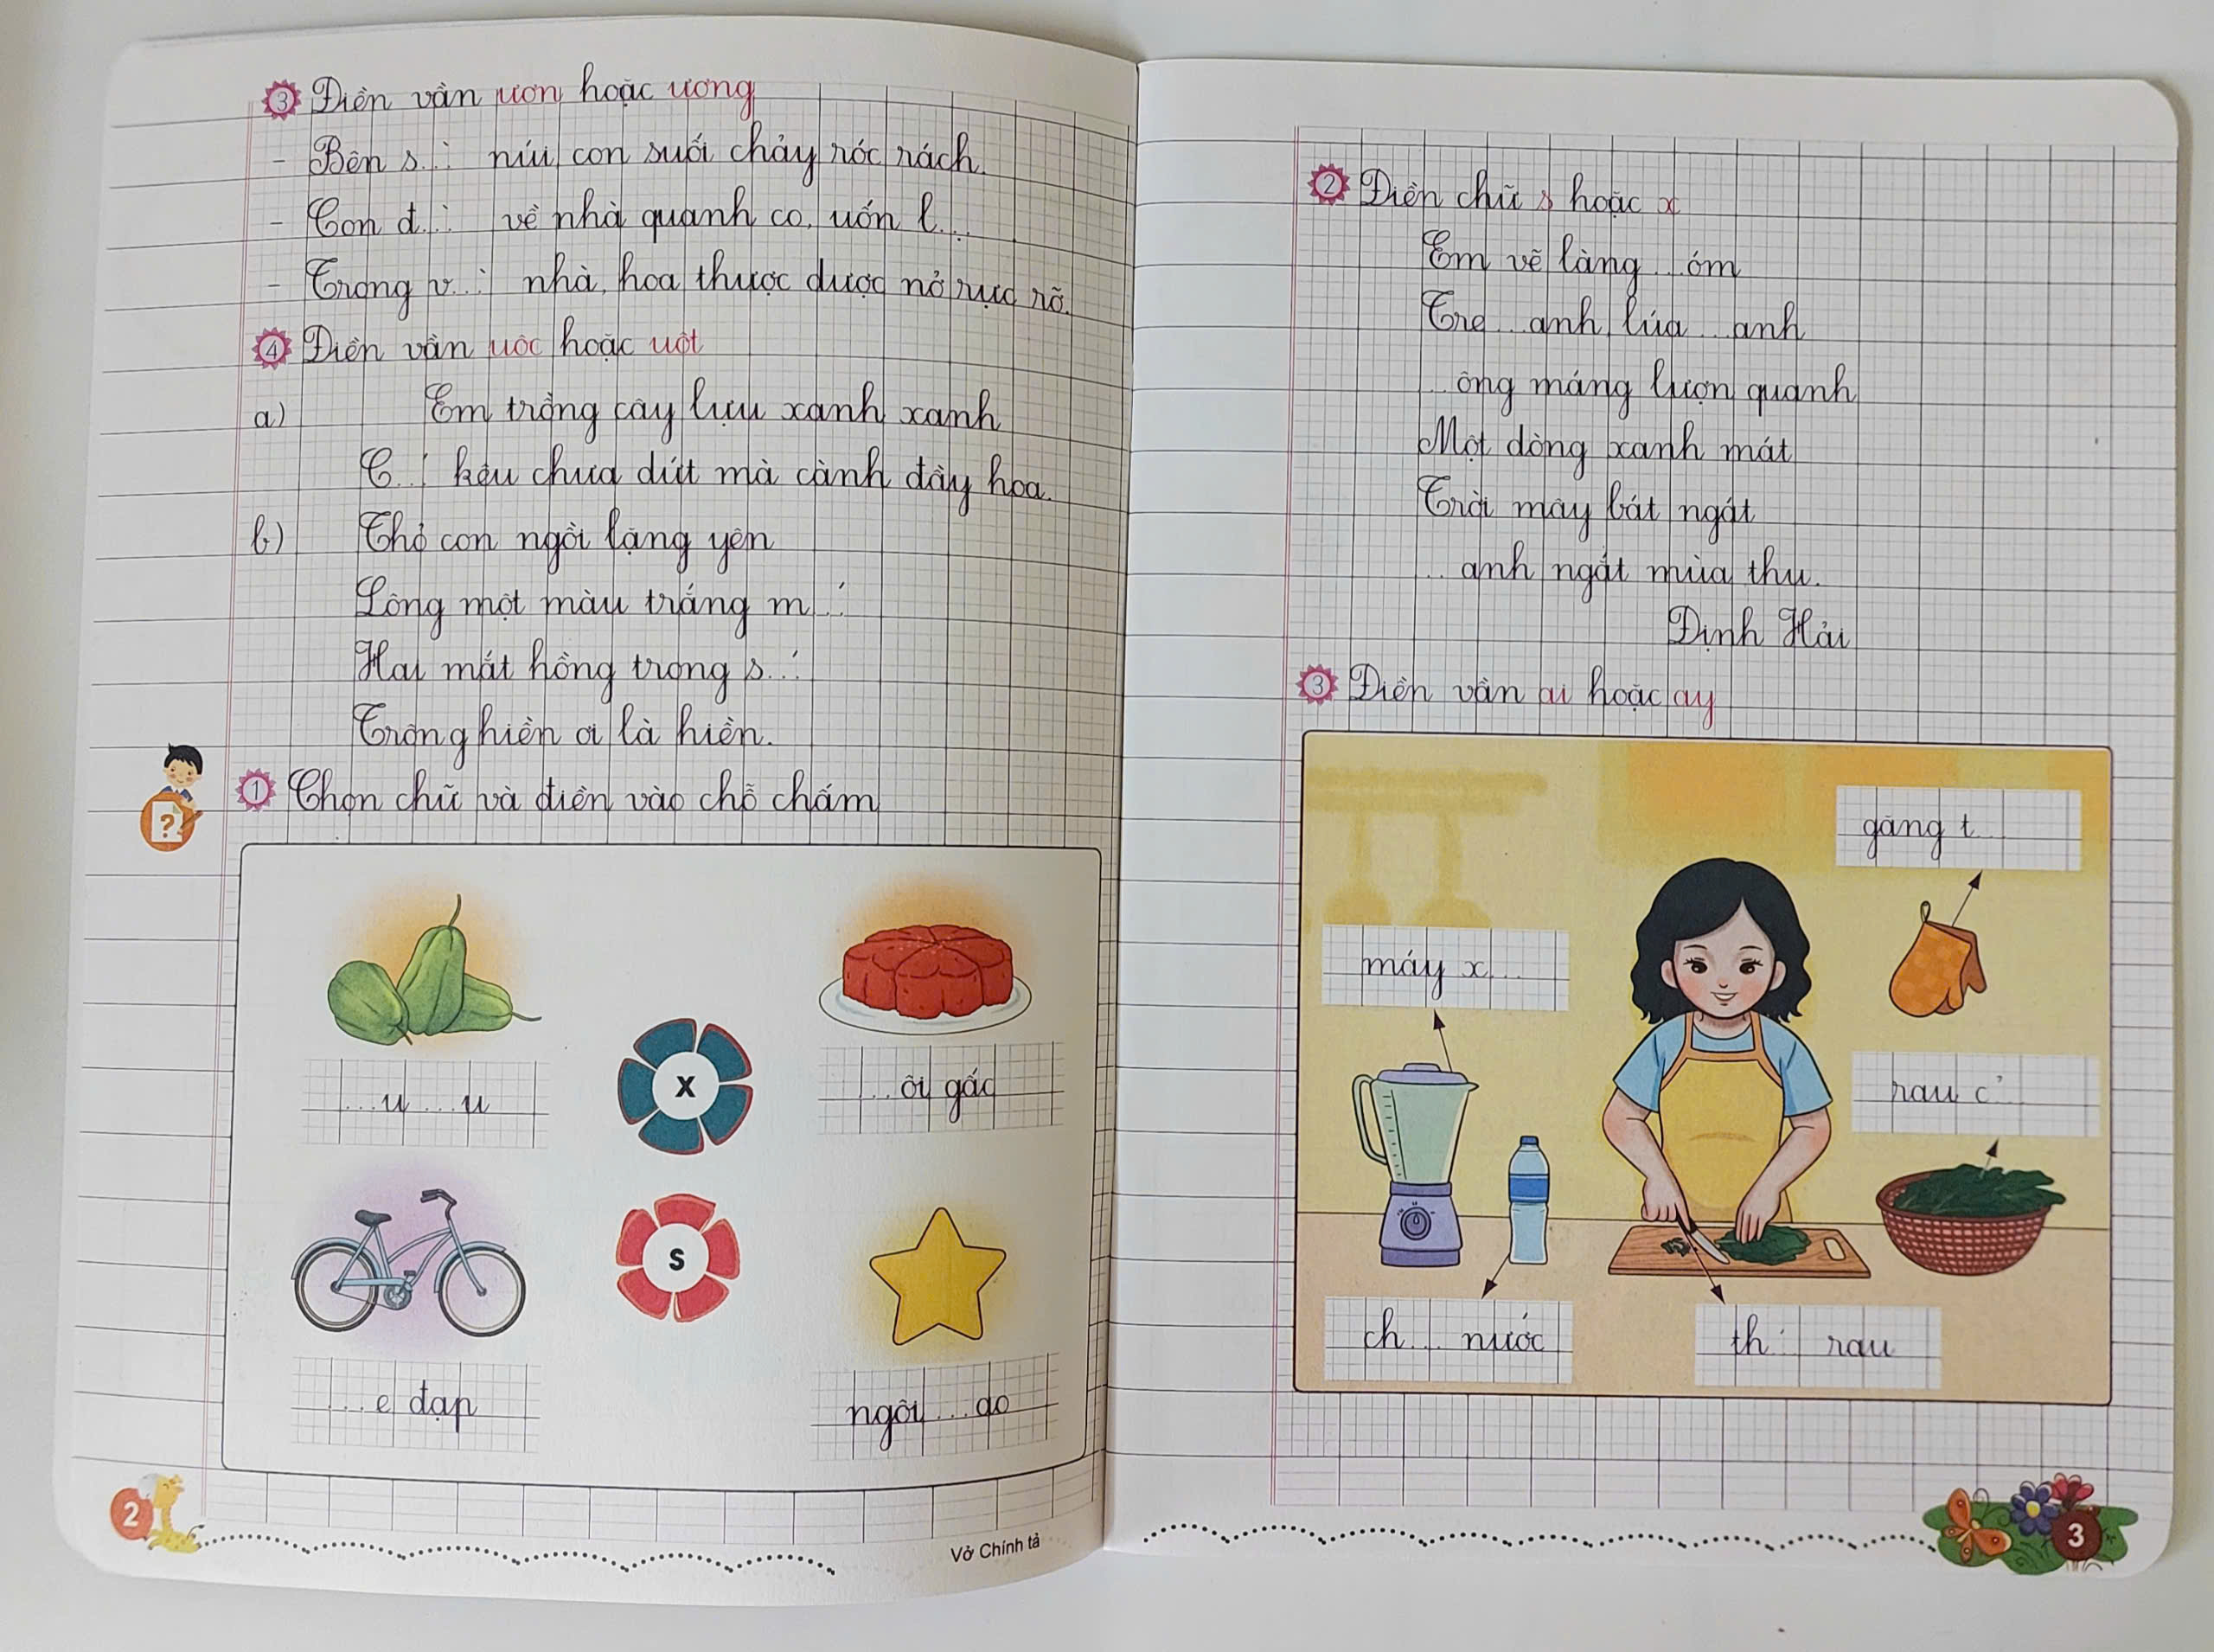 3 Điền vần ươn hoặc ương
- Bên s..̀. núi, con suối chảy róc rách.
- Con đ..̀. về nhà quanh co, uốn l...
- Trong v..̀. nhà, hoa thược dược nở rực rỡ.
4 Điền vần uôc hoặc uôt
a) Em trồng cây lựu xanh xanh
C..́. kêu chưa dứt mà cành đầy hoa.
b) Thỏ con ngồi lặng yên
Lông một màu trắng m..́.
Hai mắt hồng trong s..́.
Trông hiền ơi là hiền.
1 Chọn chữ và điền vào chỗ chấm
?
...u ...u
X
...ôi gấc
...e đạp
S
ngôi ...ao
2
Vở Chính tả
2 Điền chữ s hoặc x
Em vẽ làng ...óm
Tre ...anh, lúa ...anh
...ông máng lượn quanh
Một dòng xanh mát
Trời mây bát ngát
...anh ngắt mùa thu.
Định Hải
3 Điền vần ai hoặc ay
găng t...
máy x...
rau c..̉.
ch... nước
th..́. rau
3